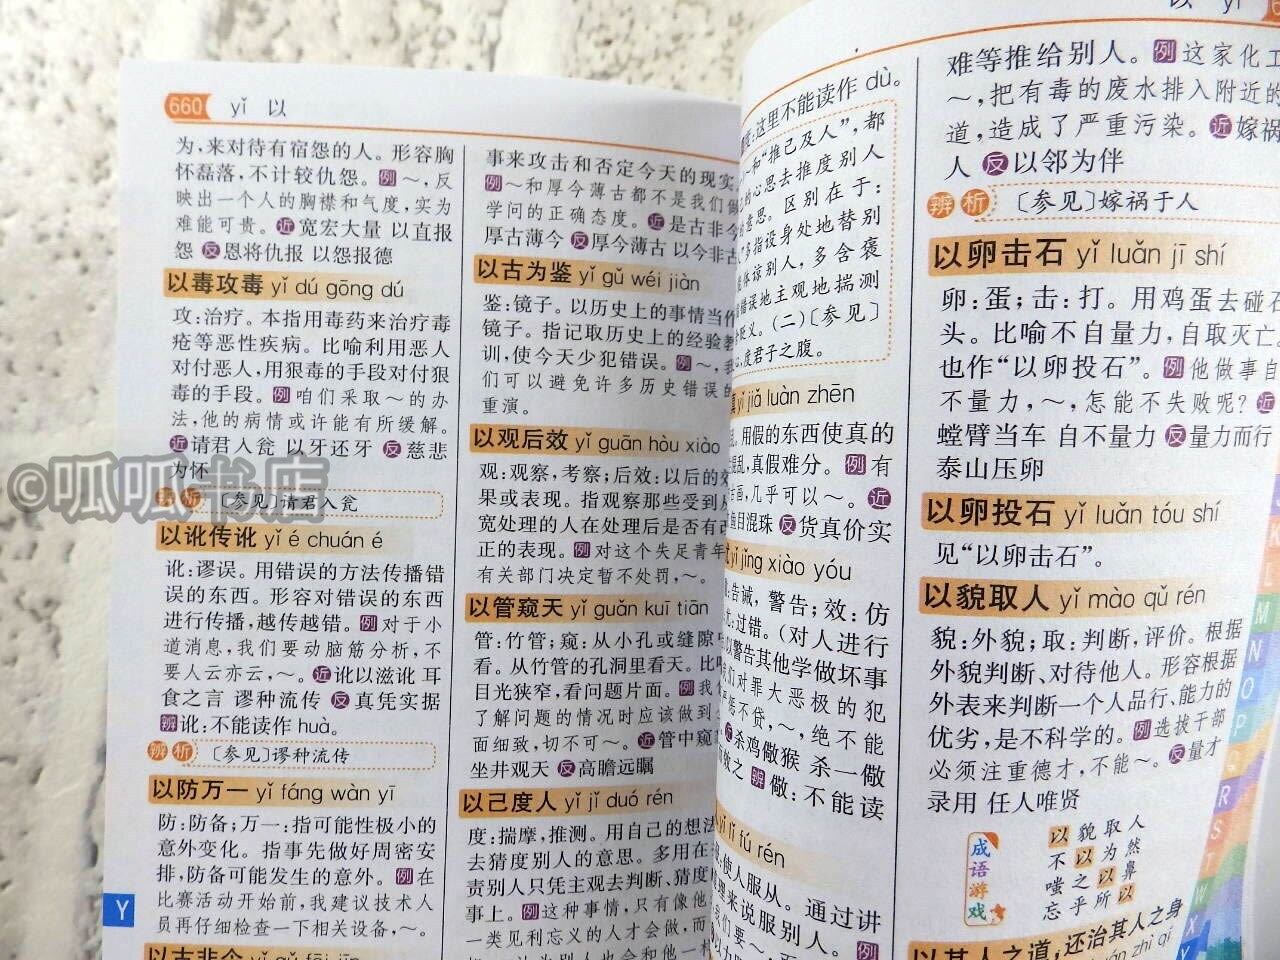 660 yǐ 以
为,来对待有宿怨的人。形容胸
怀磊落,不计较仇怨。例～,反
映出一个人的胸襟和气度,实为
难能可贵。近宽宏大量 以直报
怨 反恩将仇报 以怨报德
以毒攻毒 yǐ dú gōng dú
攻:治疗。本指用毒药来治疗毒
疮等恶性疾病。比喻利用恶人
对付恶人,用狠毒的手段对付狠
毒的手段。例咱们采取～的办
法,他的病情或许能有所缓解。
近请君入瓮 以牙还牙 反慈悲
为怀
辨析 〔参见〕请君入瓮
以讹传讹 yǐ é chuán é
讹:谬误。用错误的方法传播错
误的东西。形容对错误的东西
进行传播,越传越错。例对于小
道消息,我们要动脑筋分析,不
要人云亦云,～。近讹以滋讹 耳
食之言 谬种流传 反真凭实据
辨讹:不能读作 huà。
辨析 〔参见〕谬种流传
以防万一 yǐ fáng wàn yī
防:防备;万一:指可能性极小的
意外变化。指事先做好周密安
排,防备可能发生的意外。例在
比赛活动开始前,我建议技术人
员再仔细检查一下相关设备,～。
以古非今 yǐ gǔ fēi jīn
Y
事来攻击和否定今天的现实
例～和厚今薄古都不是我们做
学问的正确态度。近是古非今
厚古薄今 反厚今薄古 以今非古
以古为鉴 yǐ gǔ wéi jiàn
鉴:镜子。以历史上的事情当作
镜子。指记取历史上的经验教
训,使今天少犯错误。例～,我
们可以避免许多历史错误的
重演。
以观后效 yǐ guān hòu xiào
观:观察,考察;后效:以后的效
果或表现。指观察那些受到从
宽处理的人在处理后是否有改
正的表现。例对这个失足青年
有关部门决定暂不处罚,～。
以管窥天 yǐ guǎn kuī tiān
管:竹管;窥:从小孔或缝隙
看。从竹管的孔洞里看天。比
目光狭窄,看问题片面。例我
了解问题的情况时应该做到
面细致,切不可～。近管中窥
坐井观天 反高瞻远瞩
以己度人 yǐ jǐ duó rén
度:揣摩,推测。用自己的想法
去猜度别人的意思。多用在
责别人只凭主观去判断、猜度
事上。例这种事情,只有像他
一类见利忘义的人才会做,而
以 yǐ
:这里不能读作 dù。
和“推己及人”,都
的心思去推度别人
意思。区别在于:
多指设身处地替别
体谅别人,多含褒
错误地主观地揣测
贬义。(二)〔参见〕
心,度君子之腹。
真 yǐ jiǎ luàn zhēn
用假的东西使真的
混乱,真假难分。例有
画,几乎可以～。近
鱼目混珠 反货真价实
yǐ jǐng xiào yóu
告诫,警告;效:仿
过错。(对人进行
以警告其他学做坏事
我们对罪大恶极的犯
不贷,～,绝不能
近杀鸡儆猴 杀一儆
之 辨 儆:不能读
yǐ lǐ fú rén
使人服从。通过讲
理来说服别人。例
难等推给别人。例这家化工
～,把有毒的废水排入附近的
道,造成了严重污染。近嫁祸
人 反以邻为伴
辨析 〔参见〕嫁祸于人
以卵击石 yǐ luǎn jī shí
卵:蛋;击:打。用鸡蛋去碰石
头。比喻不自量力,自取灭亡。
也作“以卵投石”。例他做事自
不量力,～,怎能不失败呢?近
螳臂当车 自不量力 反量力而行
泰山压卵
以卵投石 yǐ luǎn tóu shí
见“以卵击石”。
以貌取人 yǐ mào qǔ rén
貌:外貌;取:判断,评价。根据
外貌判断、对待他人。形容根据
外表来判断一个人品行、能力的
优劣,是不科学的。例选拔干部
必须注重德才,不能～。反量才
录用 任人唯贤
成语游戏
以貌取人
不以为然
嗤之以鼻
忘乎所以
以其人之道,还治其人之身
L
M
N
O
P
R
S
T
W
X
Y
©呱呱书店